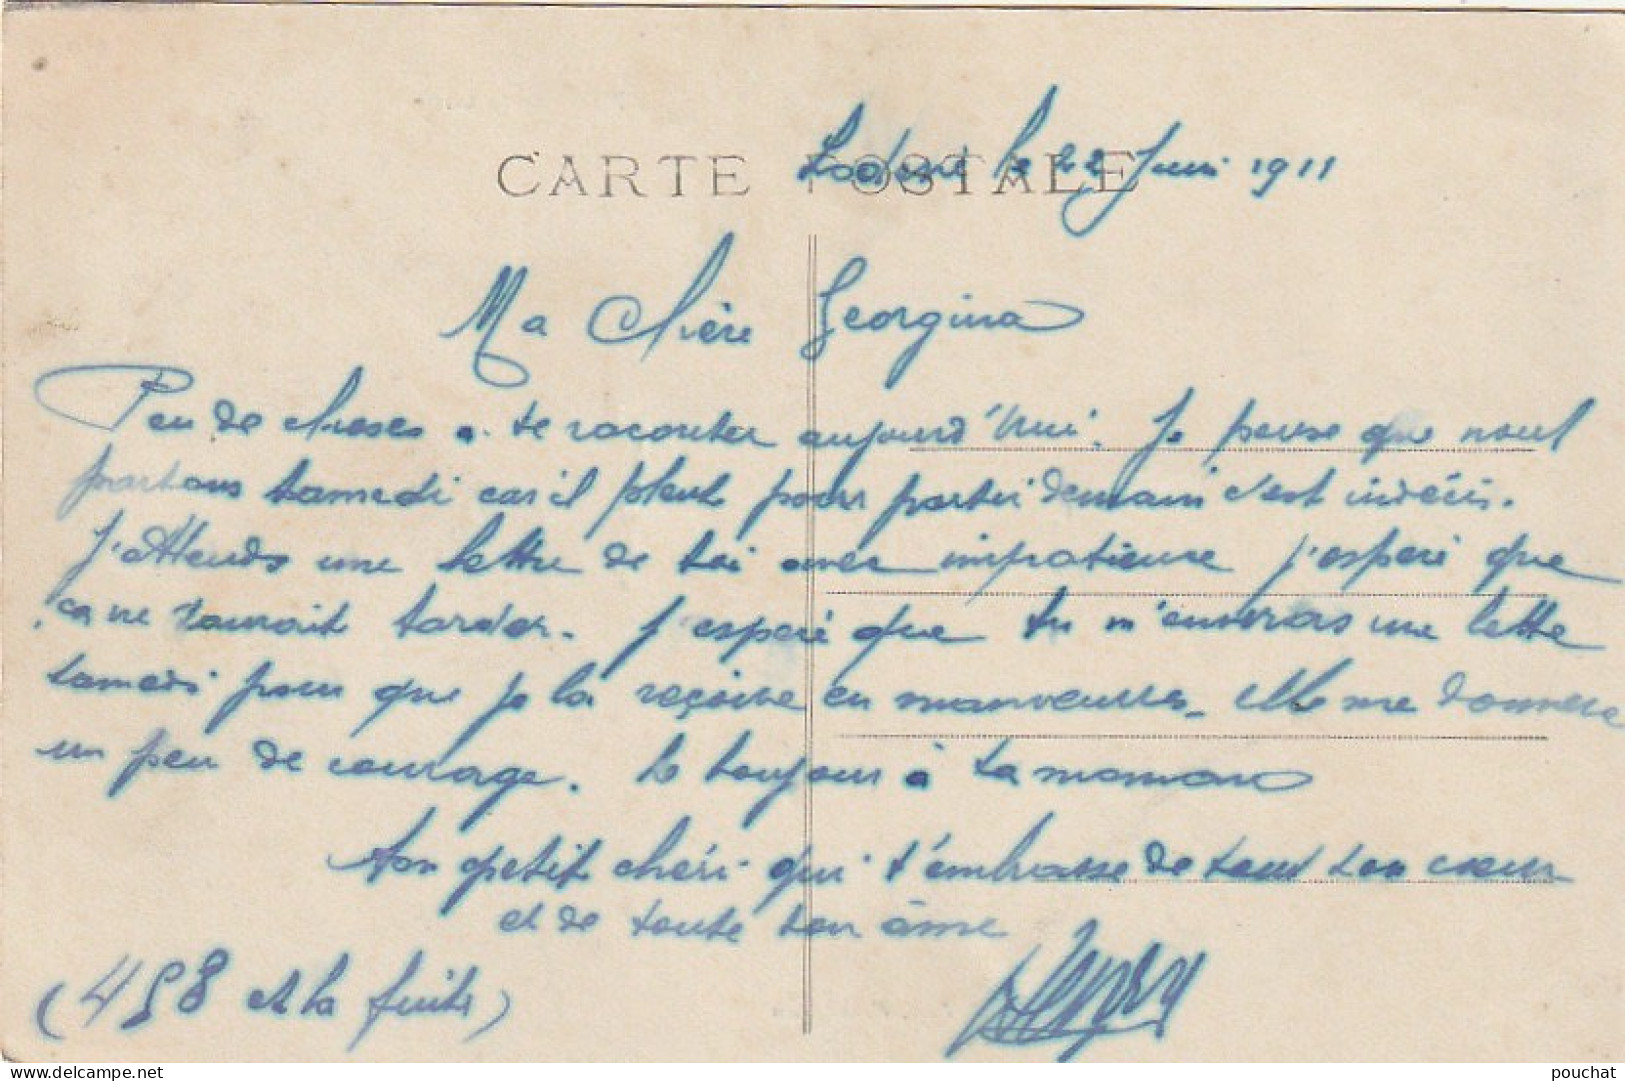 Lodève le 22 Juin 1911
CARTE POSTALE
Ma chère Georgina
Peu de choses a te raconter aujourd'hui. Je pense que nous
partons samedi car il pleut pour partir demain c'est indécis.
J'attends une lettre de toi avec impatience j'esperé que
ça ne saurait tarder. J'esperé que tu m'enverras une lettre
samedi pour que je la reçoive en manveuvres. elle me donnera
un peu de courage. toujours à ta maman
Ton petit chéri qui t'embrasse de tout son cœur
et de toute son âme
(458 et la fuite)
pouchat